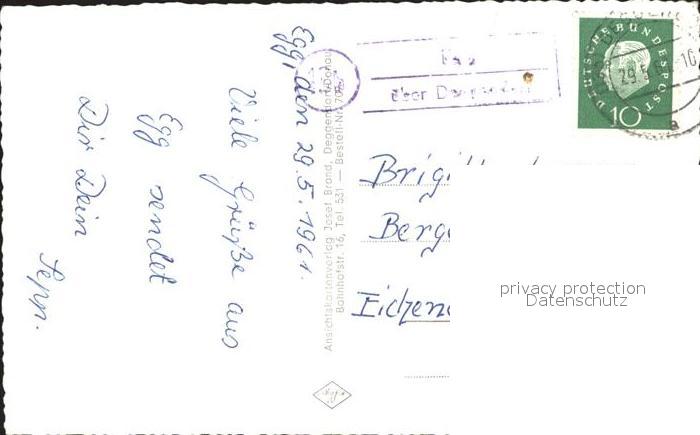 Egg, den 29.5.1961.
Viele Grüße aus
Egg sendet
Dir Dein
Sepp.
Ansichtskartenverlag Josef Brand, Deggendorf/Donau
Bahnhofstr. 16, Tel. 531 — Bestell-Nr.
über
DEUTSCHE BUNDESPOST
10
29.5.
Brigi
Berg
Eichen
privacy protection
Datenschutz